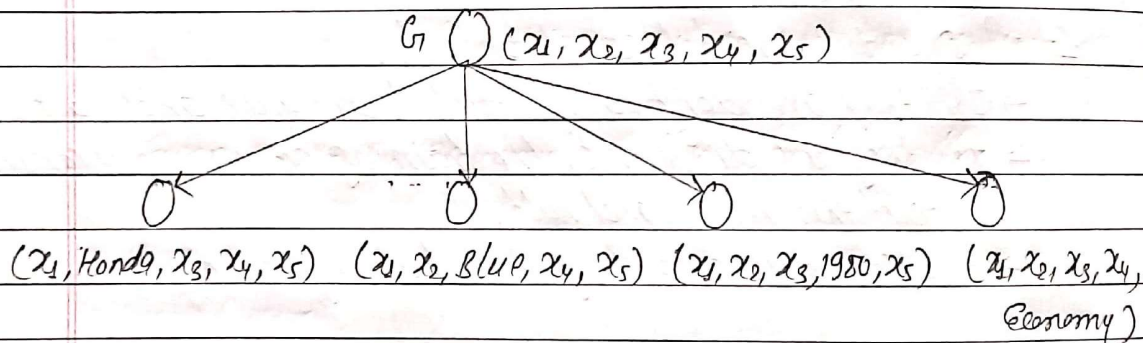 G (x1, x2, x3, x4, x5)
(x1, Honda, x3, x4, x5) (x1, x2, Blue, x4, x5) (x1, x2, x3, 1980, x5) (x1, x2, x3, x4,
Economy)